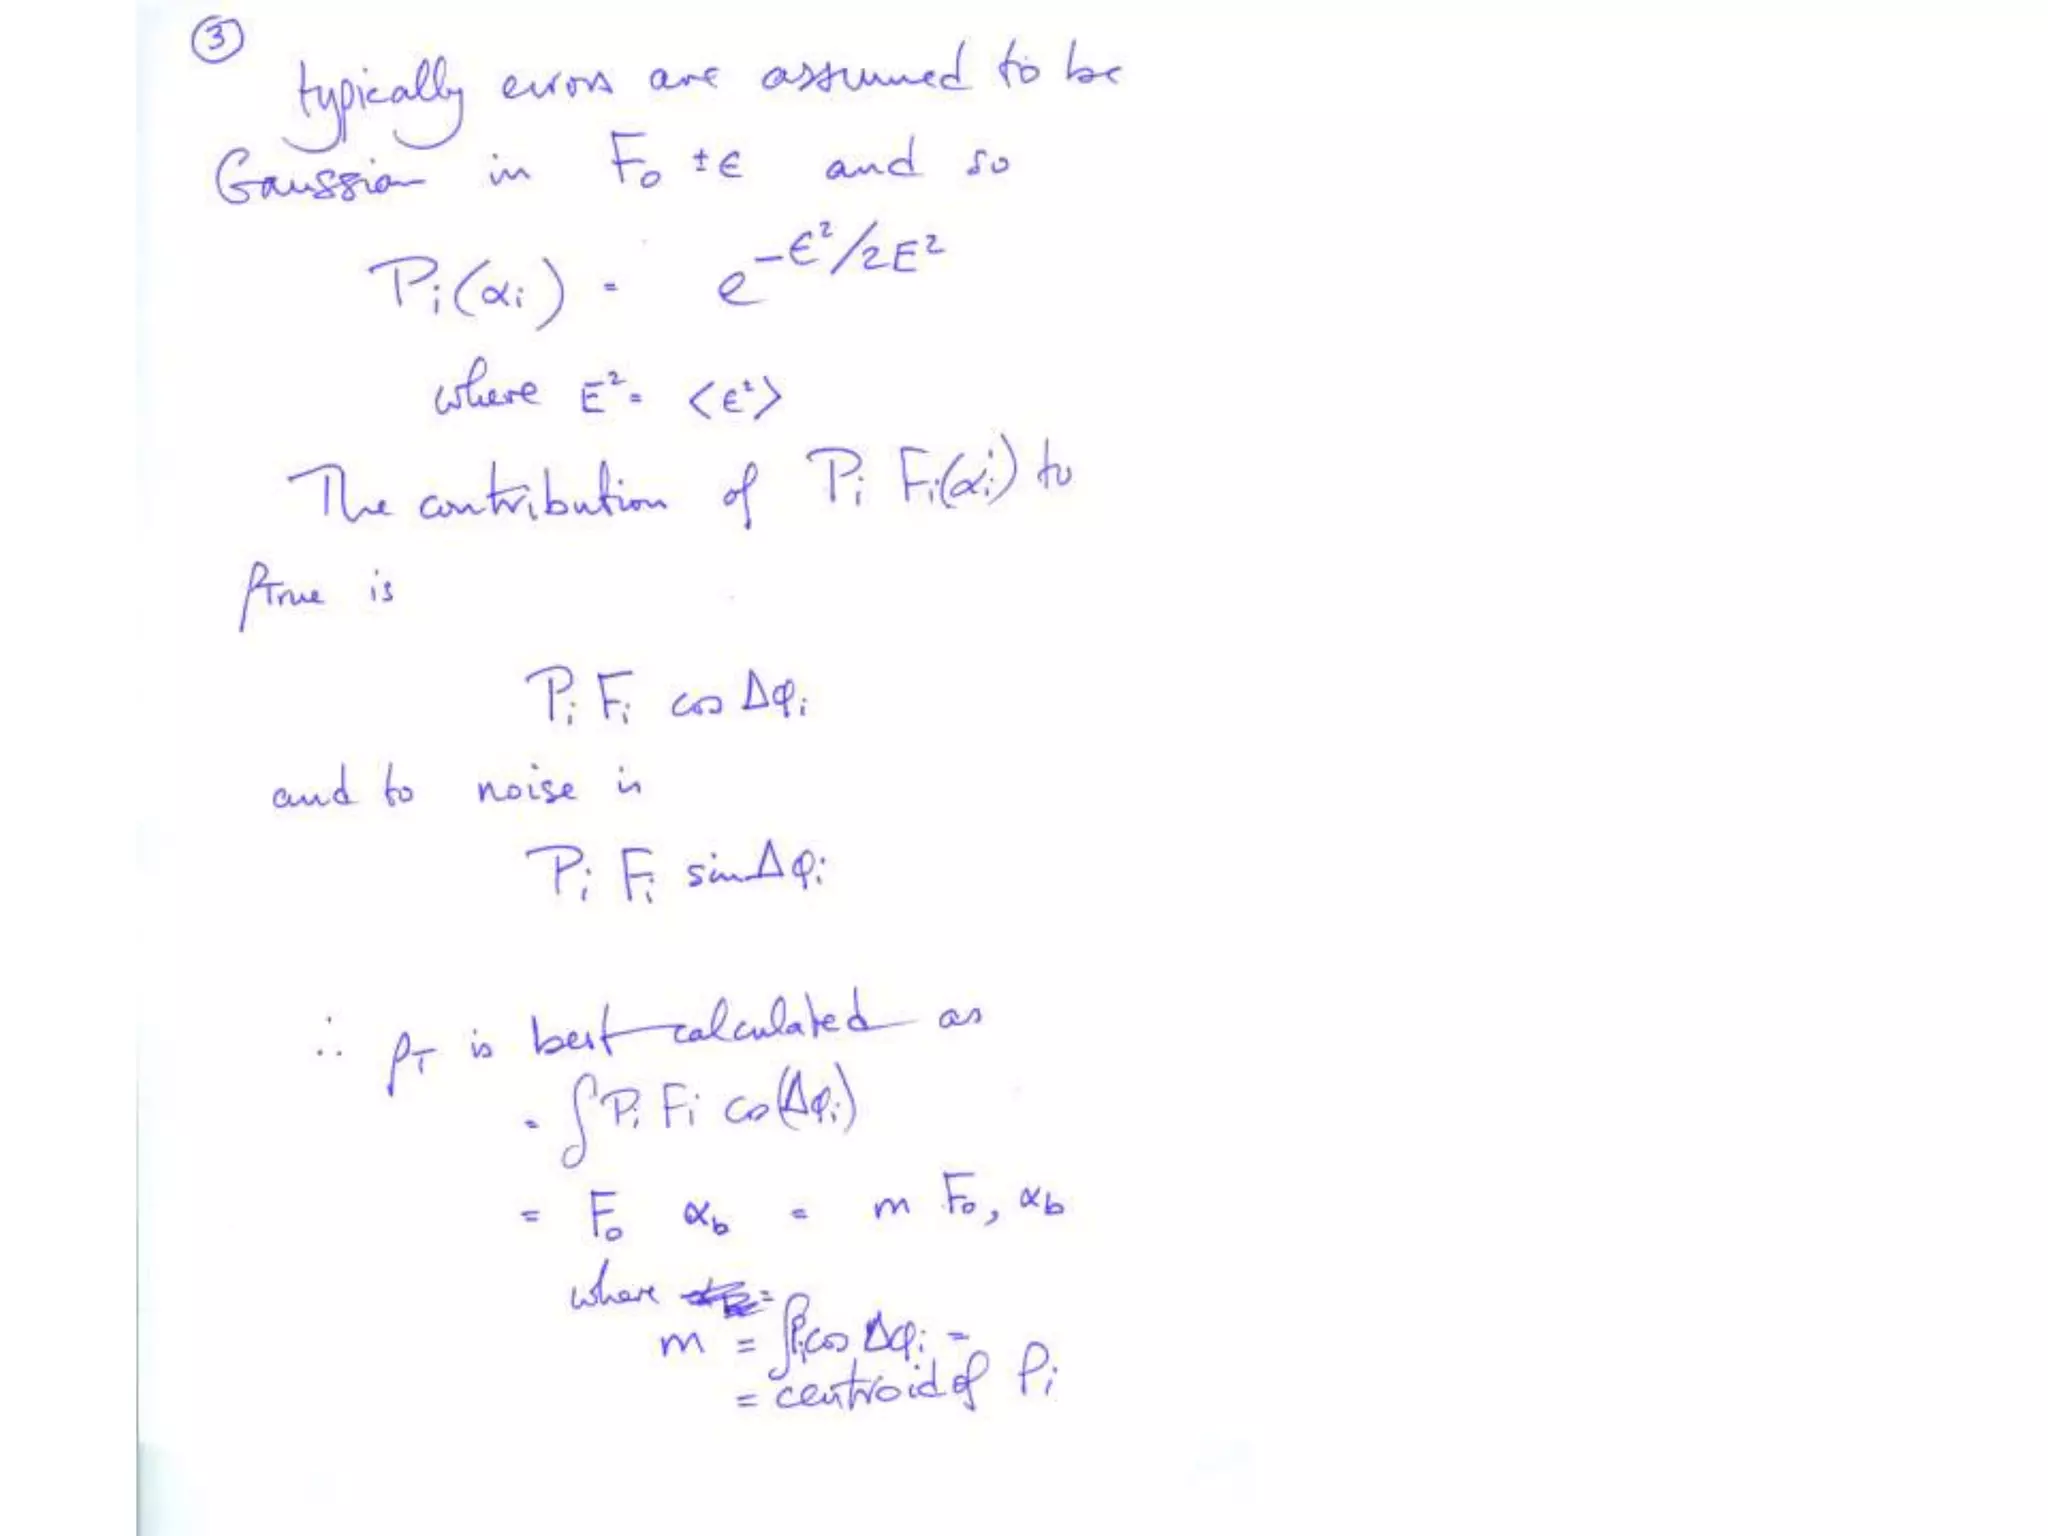 ③
typically errors are assumed to be
Gaussian in F₀ ±ϵ and so
Pᵢ(αᵢ) = e^(-ϵ²/2E²)
where E² = <ϵ²>
The contribution of Pᵢ Fᵢ(αᵢ) to
ρTrue is
Pᵢ Fᵢ cos Δφᵢ
and to noise is
Pᵢ Fᵢ sin Δφᵢ
∴ ρT is best calculated as
= ∫ Pᵢ Fᵢ cos(Δφᵢ)
= F₀ αb = m F₀, αb
where =
m = ∫Pᵢcos Δφᵢ =
= centroid of Pᵢ